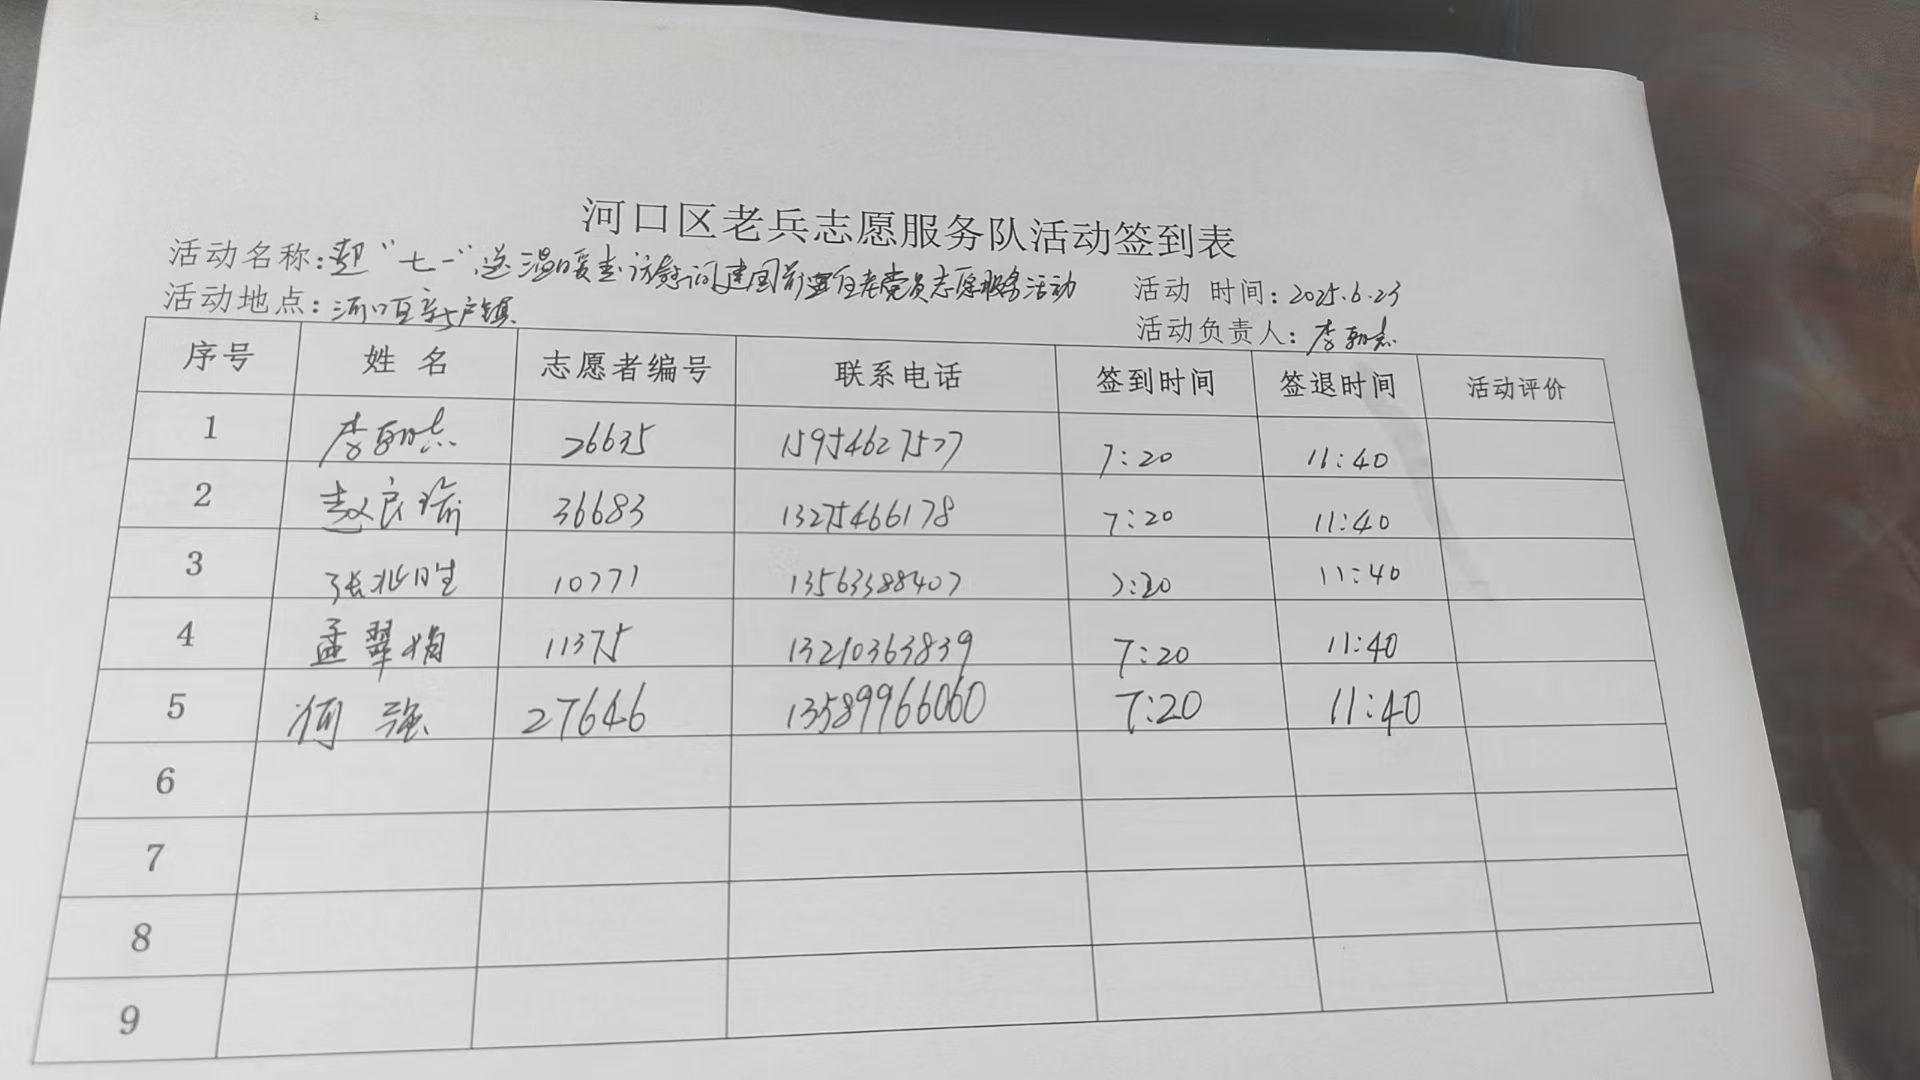 河口区老兵志愿服务队活动签到表
活动名称:迎"七一"送温暖走访慰问建国前退伍老党员志愿服务活动
活动时间:2025.6.23
活动地点:河口区新户镇
活动负责人:李朝志
序号 姓名 志愿者编号 联系电话 签到时间 签退时间 活动评价
1 李朝志 26635 15954627577 7:20 11:40
2 赵良瑜 36683 13275466178 7:20 11:40
3 张兆胜 10771 13563388407 7:20 11:40
4 孟翠娟 11375 13210363839 7:20 11:40
5 何强 27646 13589966060 7:20 11:40
6
7
8
9